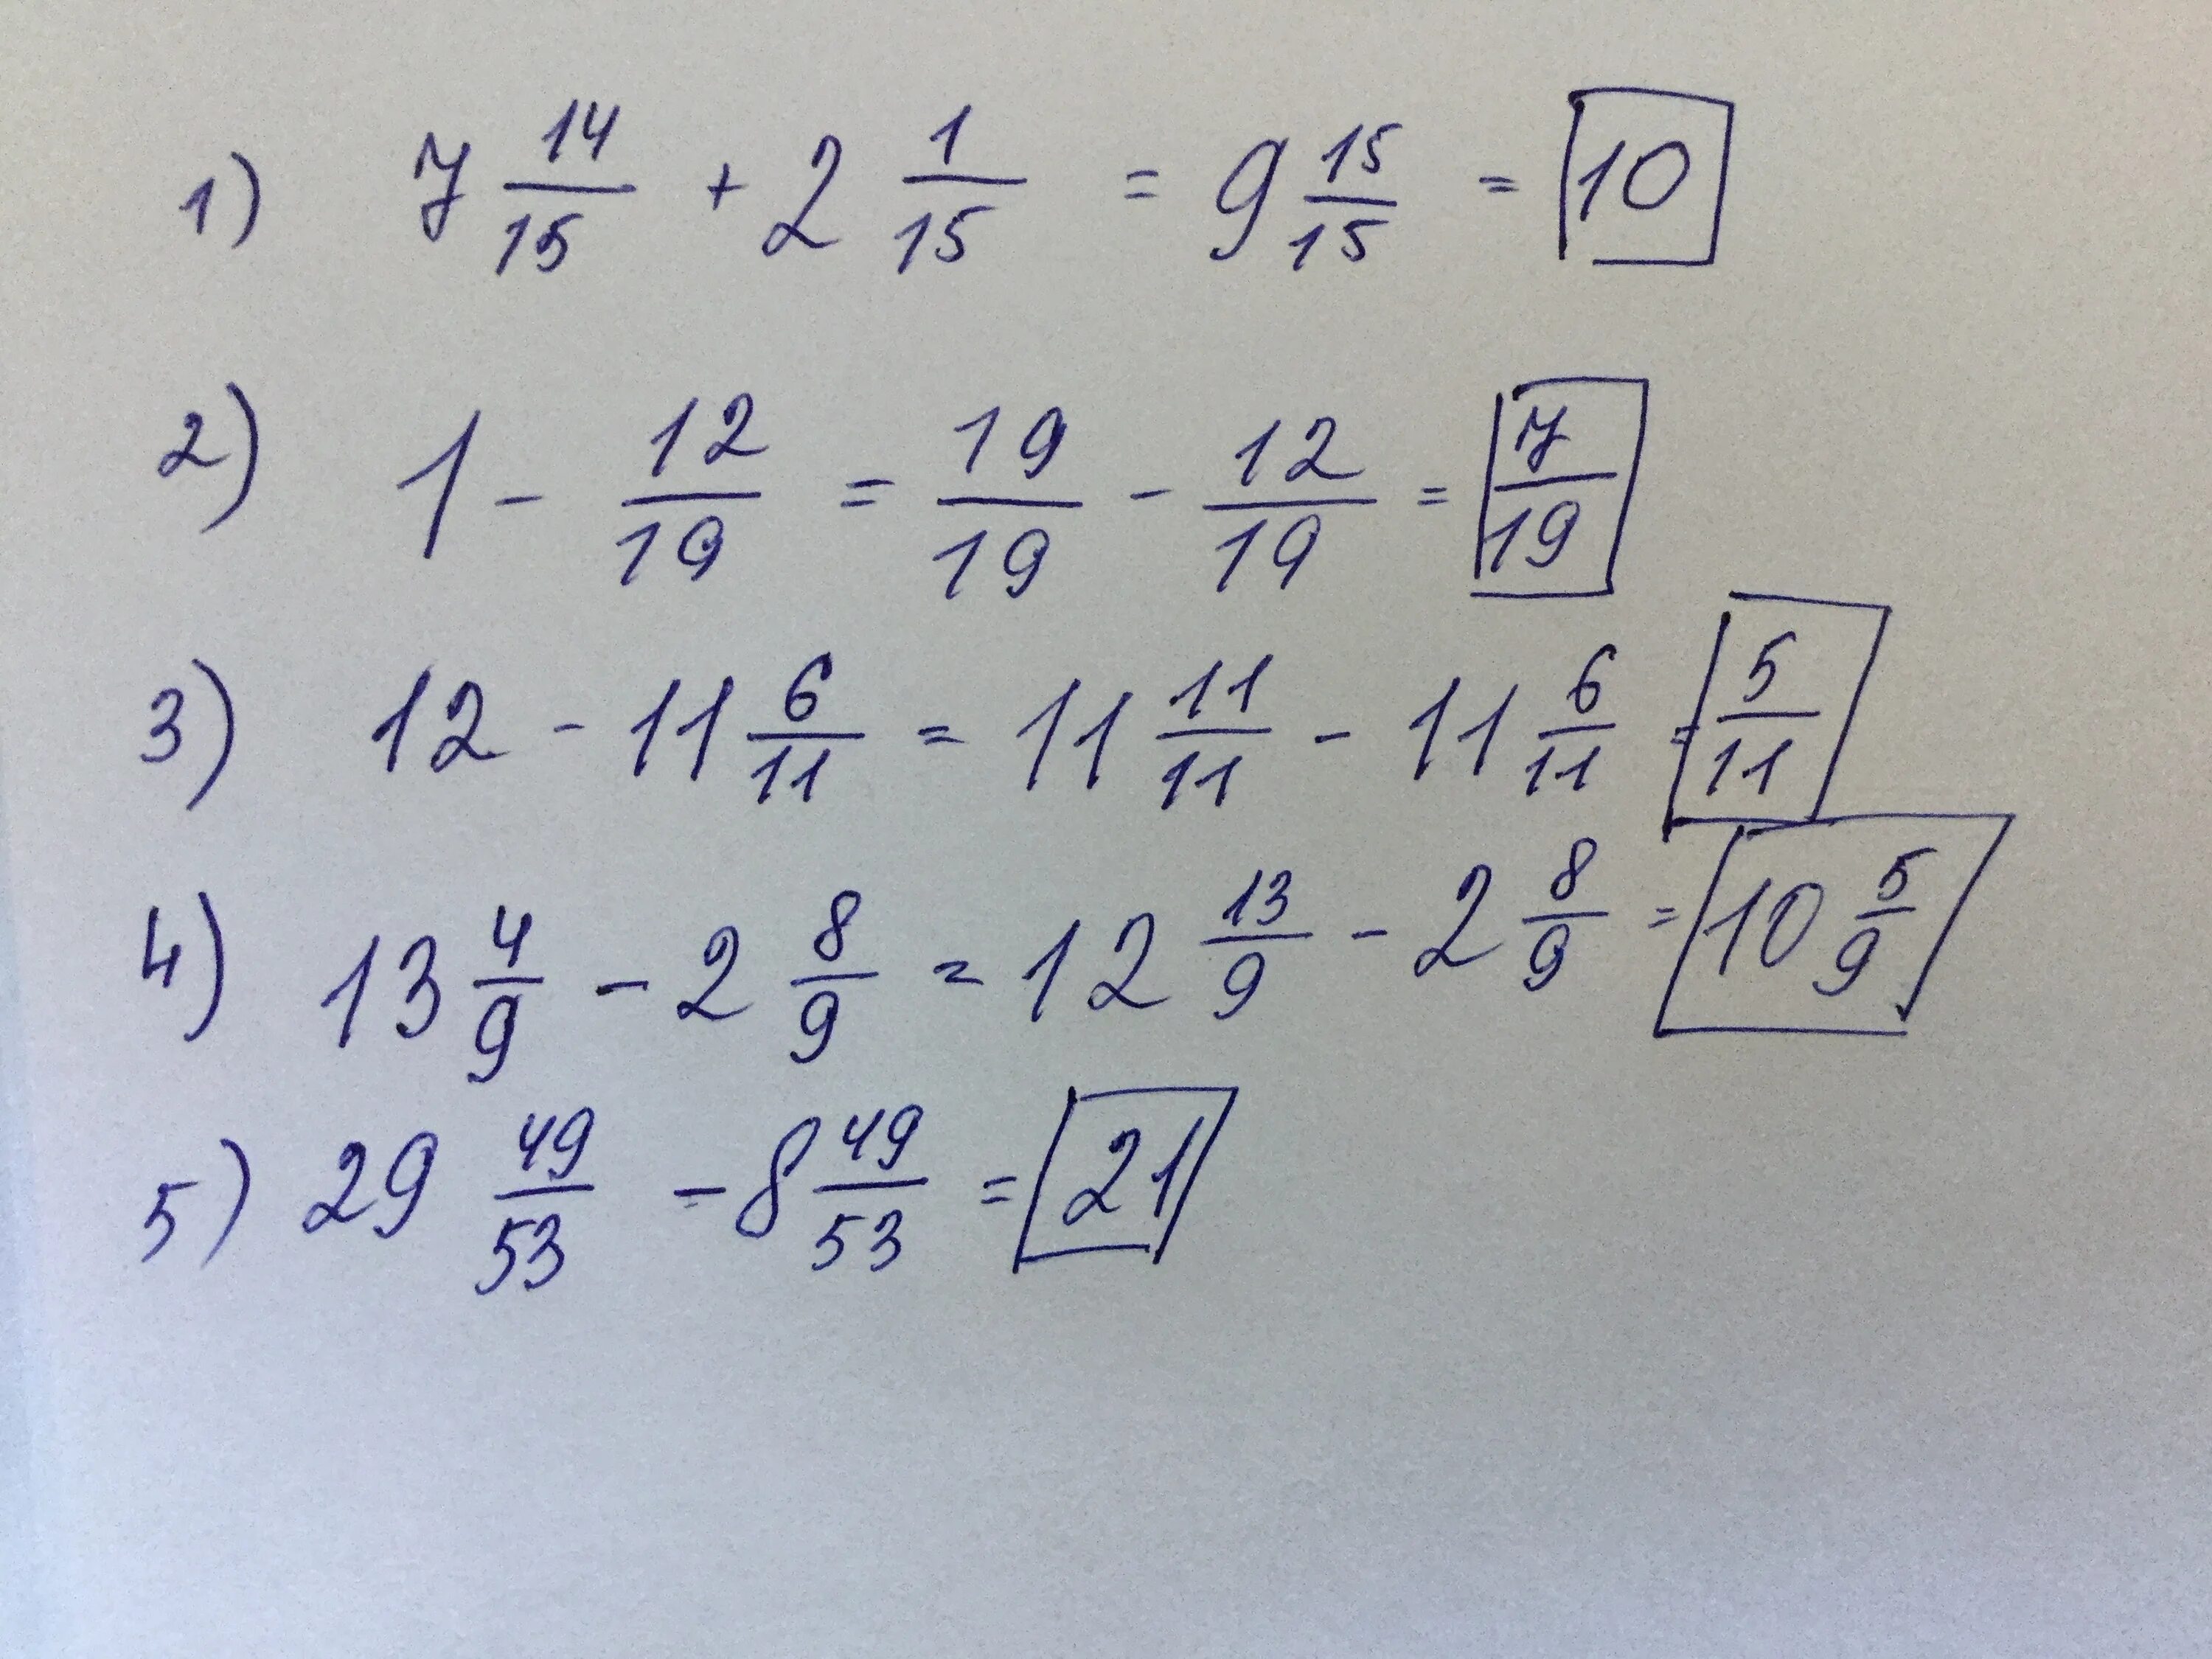 1) 7 14/15 + 2 1/15 = 9 15/15 = 10
2) 1 - 12/19 = 19/19 - 12/19 = 7/19
3) 12 - 11 6/11 = 11 11/11 - 11 6/11 = 5/11
4) 13 4/9 - 2 8/9 = 12 13/9 - 2 8/9 = 10 5/9
5) 29 49/53 - 8 49/53 = 21